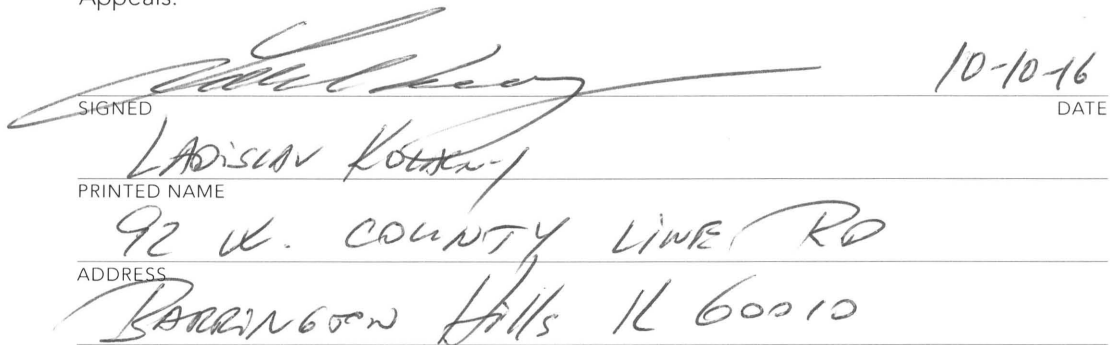 Appeals.
10-10-16
SIGNED DATE
LADISLAV
PRINTED NAME
92 W. COUNTY LINE RD
ADDRESS
BARRINGTON Hills IL 60010